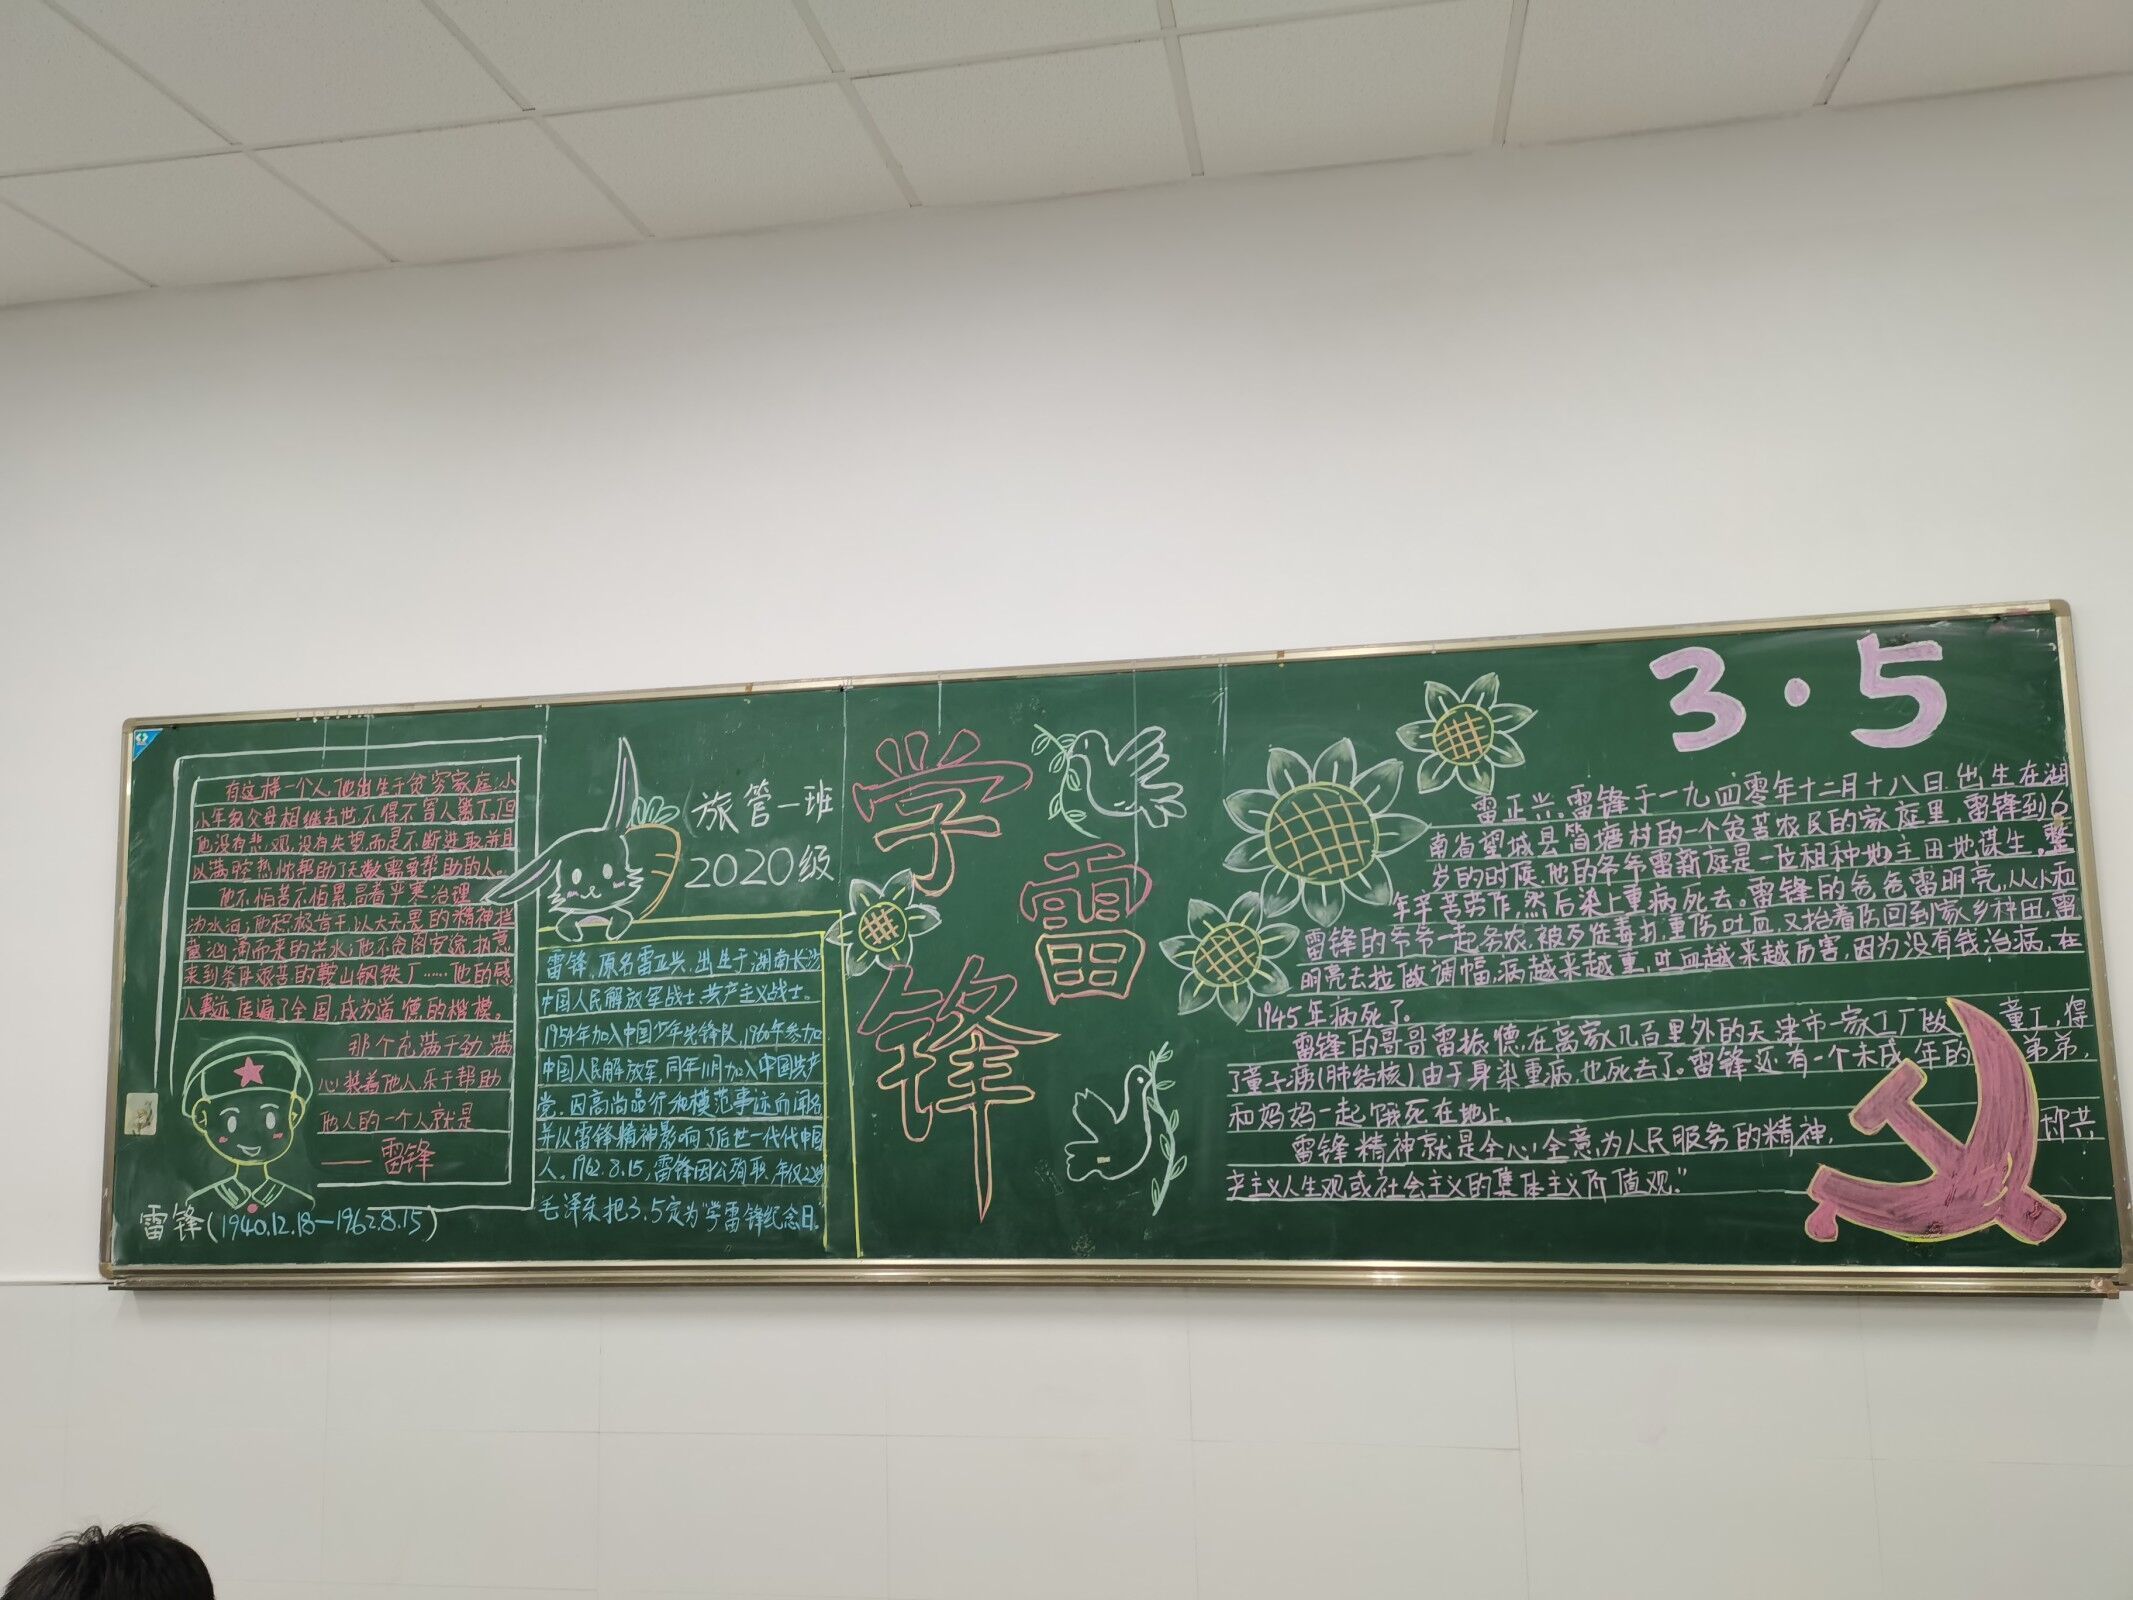 有这样一个人,他出生于贫穷家庭,小
小年纪父母相继去世,不得不寄人篱下。但
他没有悲观,没有失望,而是不断进取,并且
以满腔热忱帮助了无数需要帮助的人。
他不怕苦不怕累,冒着严寒治理
沩水河;他积极肯干,以大无畏的精神拦
截汹涌而来的洪水;他不贪图安逸,执意
来到条件艰苦的鞍山钢铁厂……他的感
人事迹传遍了全国,成为道德的楷模。
那个充满干劲,满
心装着他人,乐于帮助
他人的一个人就是
——雷锋
雷锋(1940.12.18—1962.8.15)
旅管一班
2020级
雷锋,原名雷正兴,出生于湖南长沙
中国人民解放军战士,共产主义战士。
1954年加入中国少年先锋队,1960年参加
中国人民解放军,同年11月加入中国共产
党。因高尚品行和模范事迹而闻名
并以雷锋精神影响了后世一代代中国
人。1962.8.15,雷锋因公殉职,年仅22岁
毛泽东把3.5定为“学雷锋纪念日”
学
雷
锋
3·5
雷正兴,雷锋于一九四零年十二月十八日,出生在湖
南省望城县简塘村的一个贫苦农民的家庭里,雷锋到6
岁的时候,他的爷爷雷新庭是一位租种地主田地谋生。整
年辛苦劳作,然后染上重病死去。雷锋的爸爸雷明亮,从小和
雷锋的爷爷一起务农,被歹徒毒打,重伤吐血,又抬着伤回到家乡种田,雷
明亮去拉做调幅,病越来越重,吐血越来越厉害,因为没有钱治病,在
1945年病死了。
雷锋的哥哥雷振德,在离家几百里外的天津市一家工厂做童工,得
了童子痨(肺结核)由于身染重病,也死去了。雷锋还有一个未成年的弟弟,
和妈妈一起饿死在地上。
雷锋精神就是全心全意,为人民服务的精神,共
产主义人生观或社会主义的集体主义价值观。”